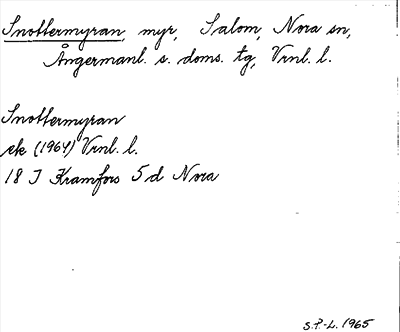 Snottermyran, myr, Salom, Nora sn,
Ångermanl. s. doms. tg, Vrnl. l.
Snottermyran
ek (1964) Vrnl. l.
18 J Kramfors 5 d Nora
S.P.-L. 1965